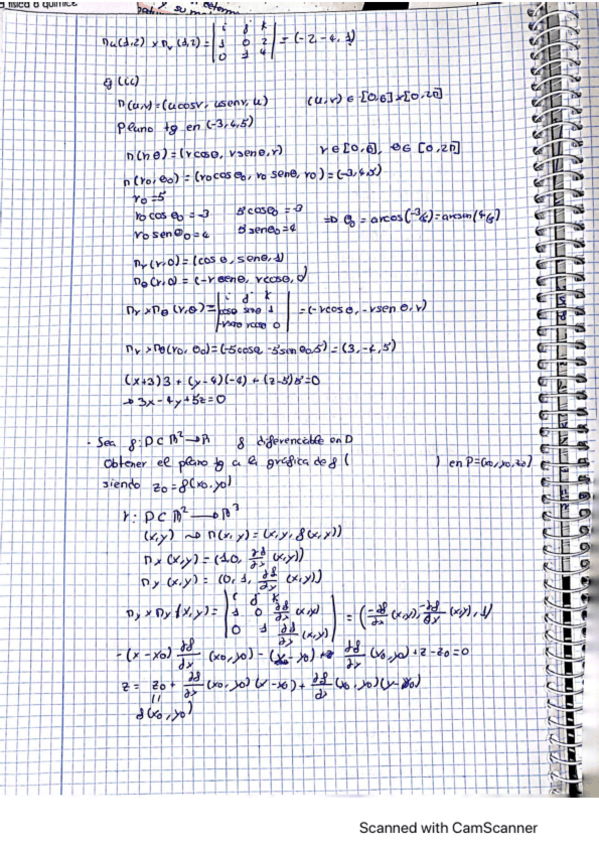 física o química
y su
i j k
nu(1,2) × nv(1,2) = | 1 0 2 | = (-2,-4,1)
0 1 4
g (cc)
n(u,v) = (ucosv, usenv, u) (u,v) ∈ [0,6]×[0,2π]
Plano tg en (-3,4,5)
n(r,θ) = (rcosθ, rsenθ, r) r∈[0,6], θ∈[0,2π]
n(r0,θ0) = (r0cosθ0, r0 senθ0, r0) = (-3,4,5)
r0=5
r0 cosθ0 = -3 5cosθ0 = -3
r0 senθ0 = 4 5senθ0 = 4 => θ0 = arcos(-3/5) = arcsin(4/5)
nr(r,θ) = (cosθ, senθ, 1)
nθ(r,θ) = (-rsenθ, rcosθ, 0)
i j k
nr × nθ (r,θ) = | cosθ senθ 1 | = (-rcosθ, -rsenθ, r)
-rsenθ rcosθ 0
nr × nθ(r0,θ0) = (-5cosθ0, -5sinθ0, 5) = (3,-4,5)
(x+3)3 + (y-4)(-4) + (z-5)5 = 0
→ 3x-4y+5z=0
· Sea f: D⊂ℝ²→ℝ f diferenciable en D
Obtener el plano tg a la gráfica de f ( ) en P=(x0,y0,z0)
siendo z0=f(x0,y0)
r: D⊂ℝ²→ℝ³
(x,y) ⤳ n(x,y) = (x,y,f(x,y))
nx(x,y) = (1,0, ∂f/∂x (x,y))
ny(x,y) = (0,1, ∂f/∂y (x,y))
i j k
nx × ny(x,y) = | 1 0 ∂f/∂x (x,y) | = (-∂f/∂x (x,y), -∂f/∂y (x,y), 1)
0 1 ∂f/∂y (x,y)
-(x-x0) ∂f/∂x (x0,y0) - (y-y0) ∂f/∂y (x0,y0) + z-z0 = 0
z = z0 + ∂f/∂x (x0,y0)(x-x0) + ∂f/∂y (x0,y0)(y-y0)
=
f(x0,y0)
Scanned with CamScanner